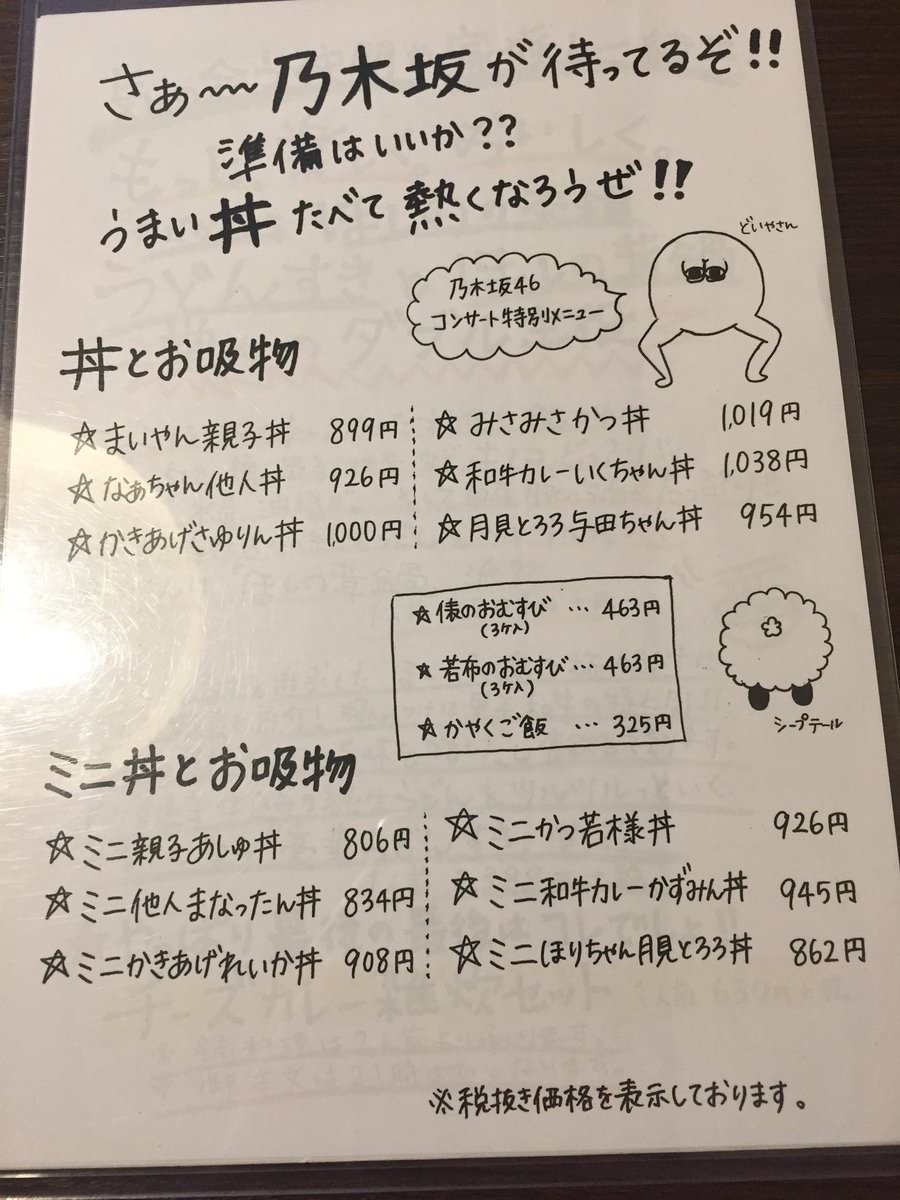 さぁ〜乃木坂が待ってるぞ!!
準備はいいか??
うまい丼たべて熱くなろうぜ!!
どいやさん
乃木坂46
コンサート特別メニュー
丼とお吸物
☆まいやん親子丼 899円
☆なぁちゃん他人丼 926円
☆かきあげさゆりん丼 1,000円
☆みさみさかつ丼 1,019円
☆和牛カレーいくちゃん丼 1,038円
☆月見とろろ与田ちゃん丼 954円
☆俵のおむすび … 463円
(3ケ入)
☆若布のおむすび … 463円
(3ケ入)
☆かやくご飯 … 325円
シープテール
ミニ丼とお吸物
☆ミニ親子あしゅ丼 806円
☆ミニ他人まなったん丼 834円
☆ミニかきあげれいか丼 908円
☆ミニかつ若様丼 926円
☆ミニ和牛カレーかずみん丼 945円
☆ミニほりちゃん月見とろろ丼 862円
※税抜き価格を表示しております。